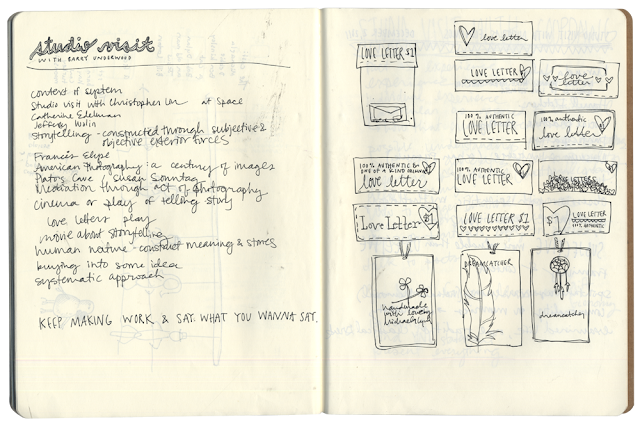 studio visit
WITH BARRY UNDERWOOD
context of system
Studio visit with Christopher at Space
Catherine Edelman
Jeffery Wolin
storytelling - constructed through subjective &
objective exterior forces
Francis
American Photography: a century of images
Plato's Cave, Susan Sontag
Mediation through act of photography
cinema or play of telling story
love letters play
movie about storytelling
human nature - construct meaning & stories
buying into some idea
systematic approach
KEEP MAKING WORK & SAY WHAT YOU WANNA SAY.
LOVE LETTER $1
love letter
LOVE LETTER
love
letter
100% AUTHENTIC
LOVE LETTER
100% authentic
love letter
100% AUTHENTIC &
ONE OF A KIND
love letter
100% AUTHENTIC
LOVE LETTER
LETTERS
Love Letter $1
LOVE LETTER $1
$1 LOVE LETTER
100% AUTHENTIC
handmade
with love
DREAMCATCHER
dreamcatcher